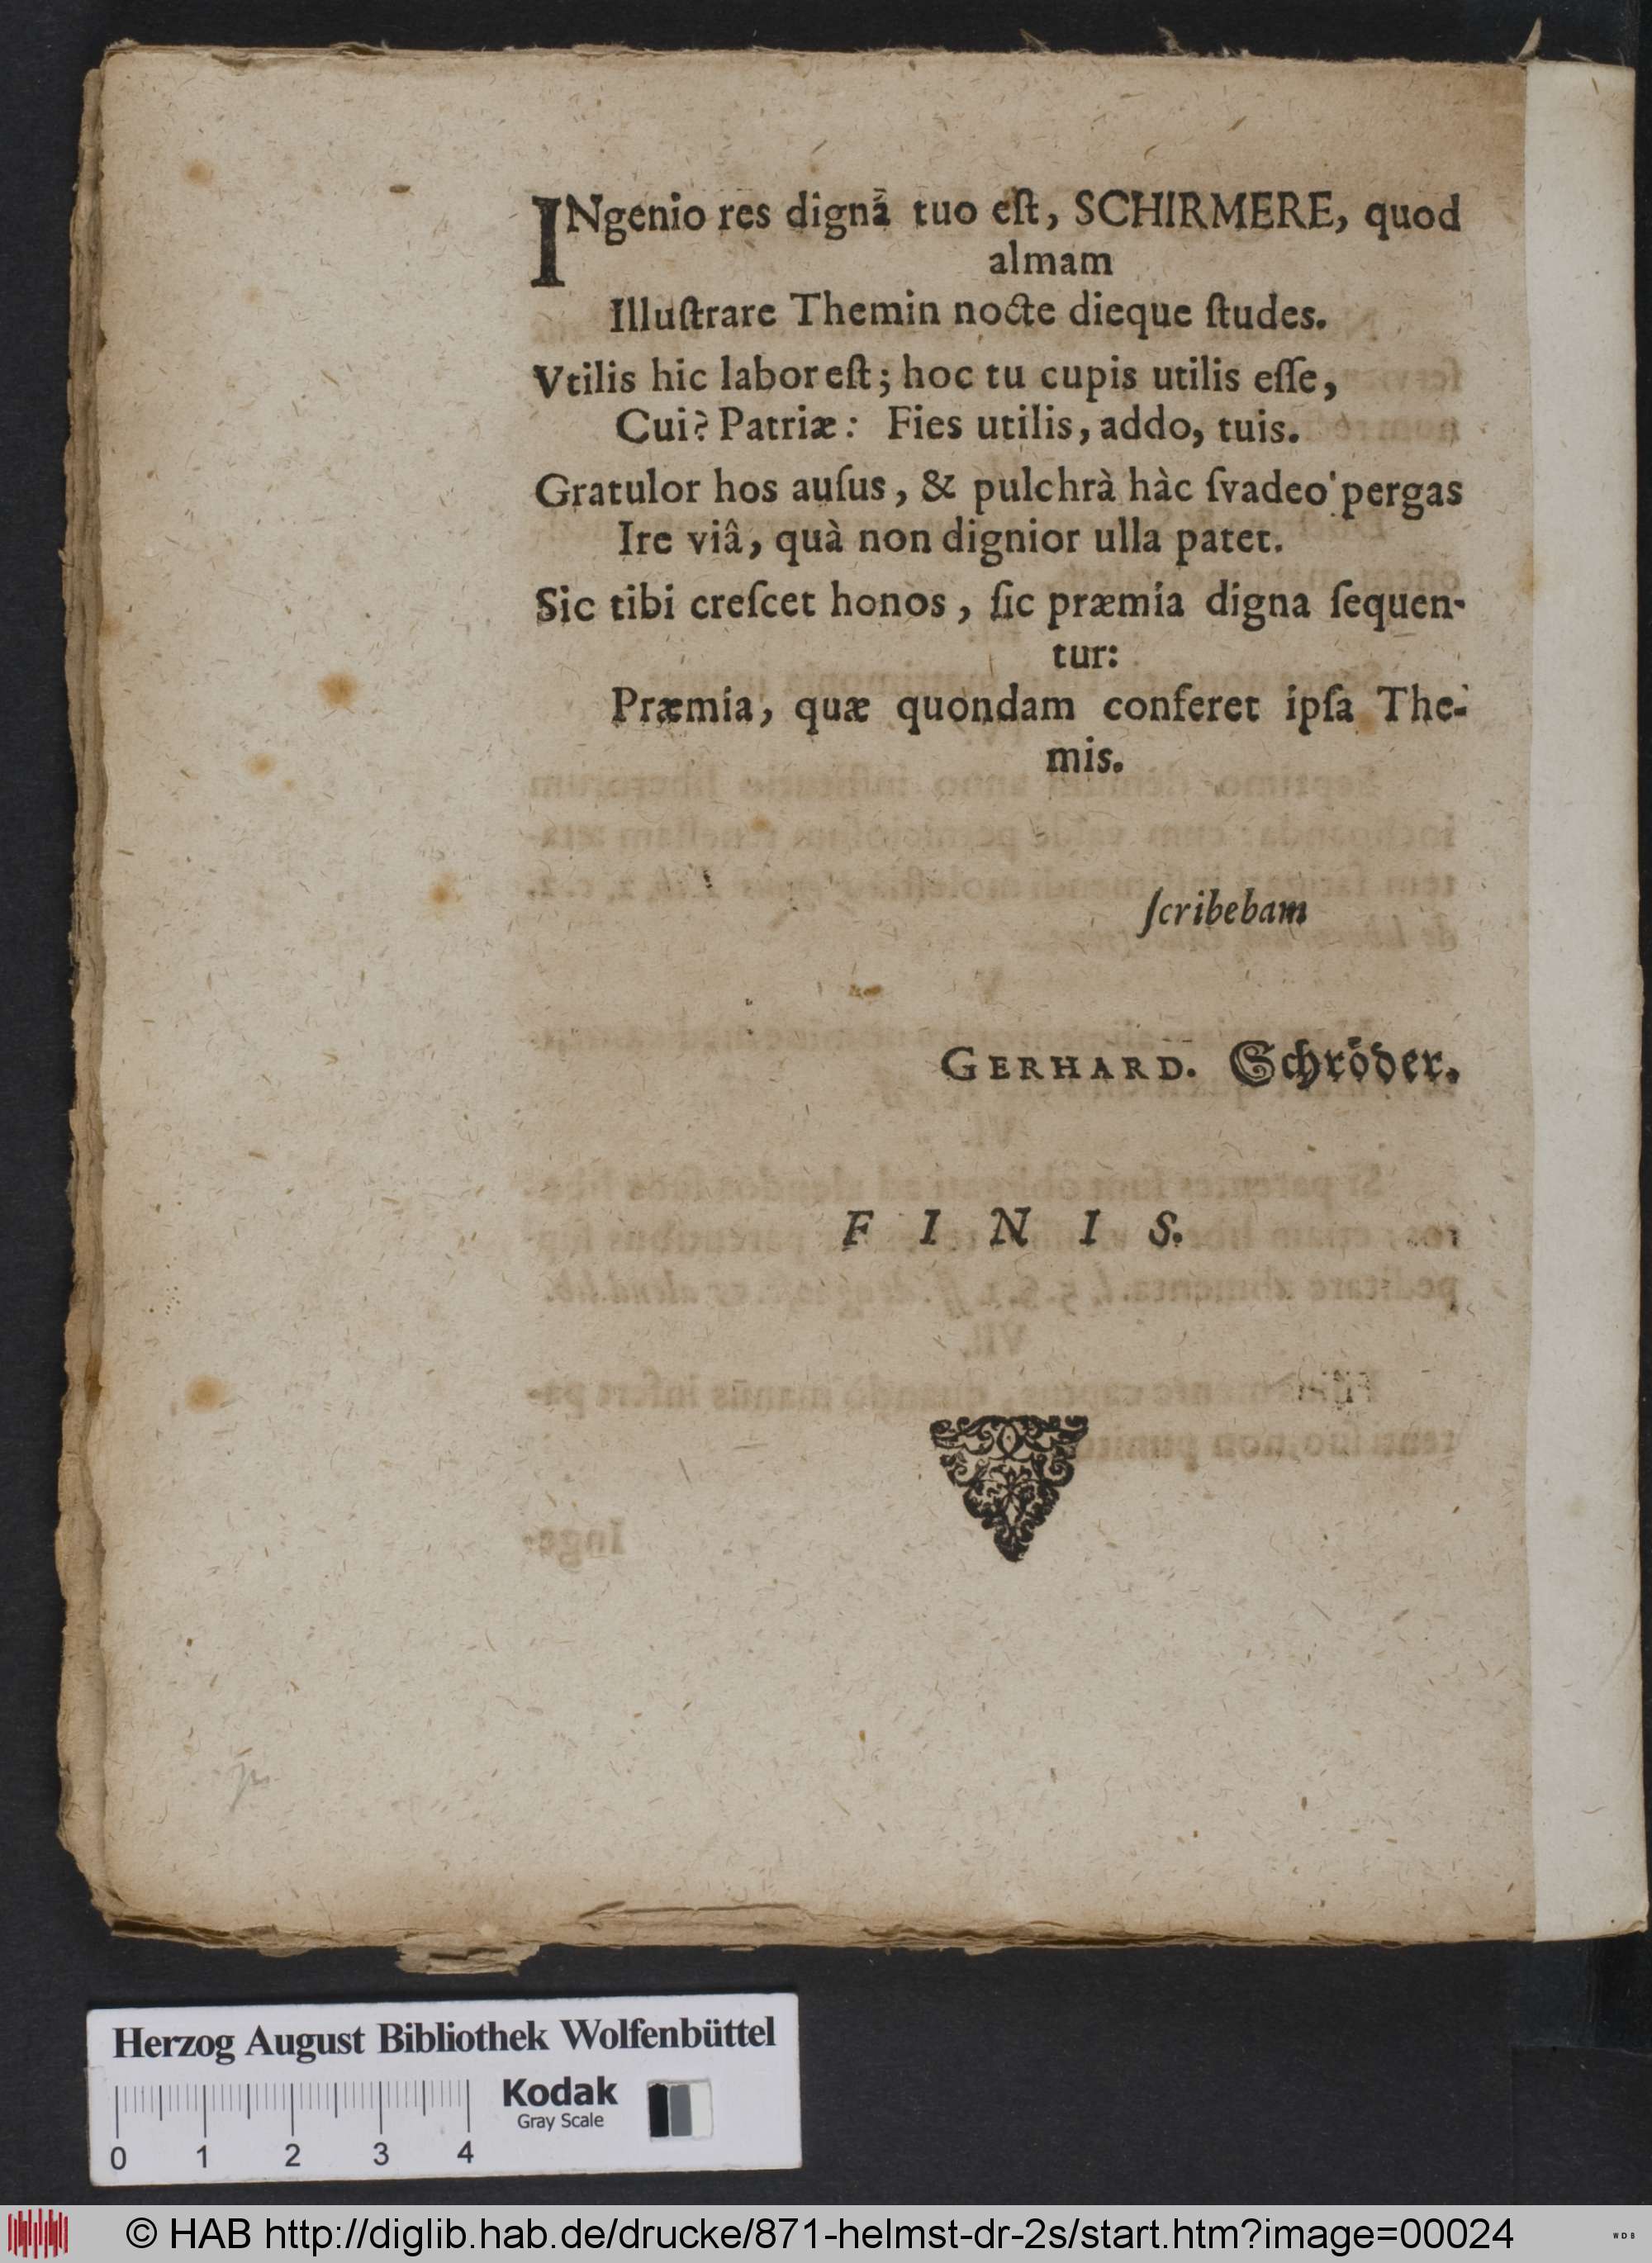 INgenio res digna tuo eſt, SCHIRMERE, quod
almam
Illuſtrare Themin nocte dieque ſtudes.
Vtilis hic labor eſt; hoc tu cupis utilis eſſe,
Cui? Patriæ: Fies utilis, addo, tuis.
Gratulor hos auſus, & pulchrà hàc ſvadeo pergas
Ire viâ, quà non dignior ulla patet.
Sic tibi creſcet honos, ſic præmia digna ſequen-
tur:
Præmia, quæ quondam conferet ipſa The-
mis.
ſcribebam
GERHARD. Schröder.
FINIS.
Herzog August Bibliothek Wolfenbüttel
Kodak
Gray Scale
0 1 2 3 4
© HAB http://diglib.hab.de/drucke/871-helmst-dr-2s/start.htm?image=00024
WDB